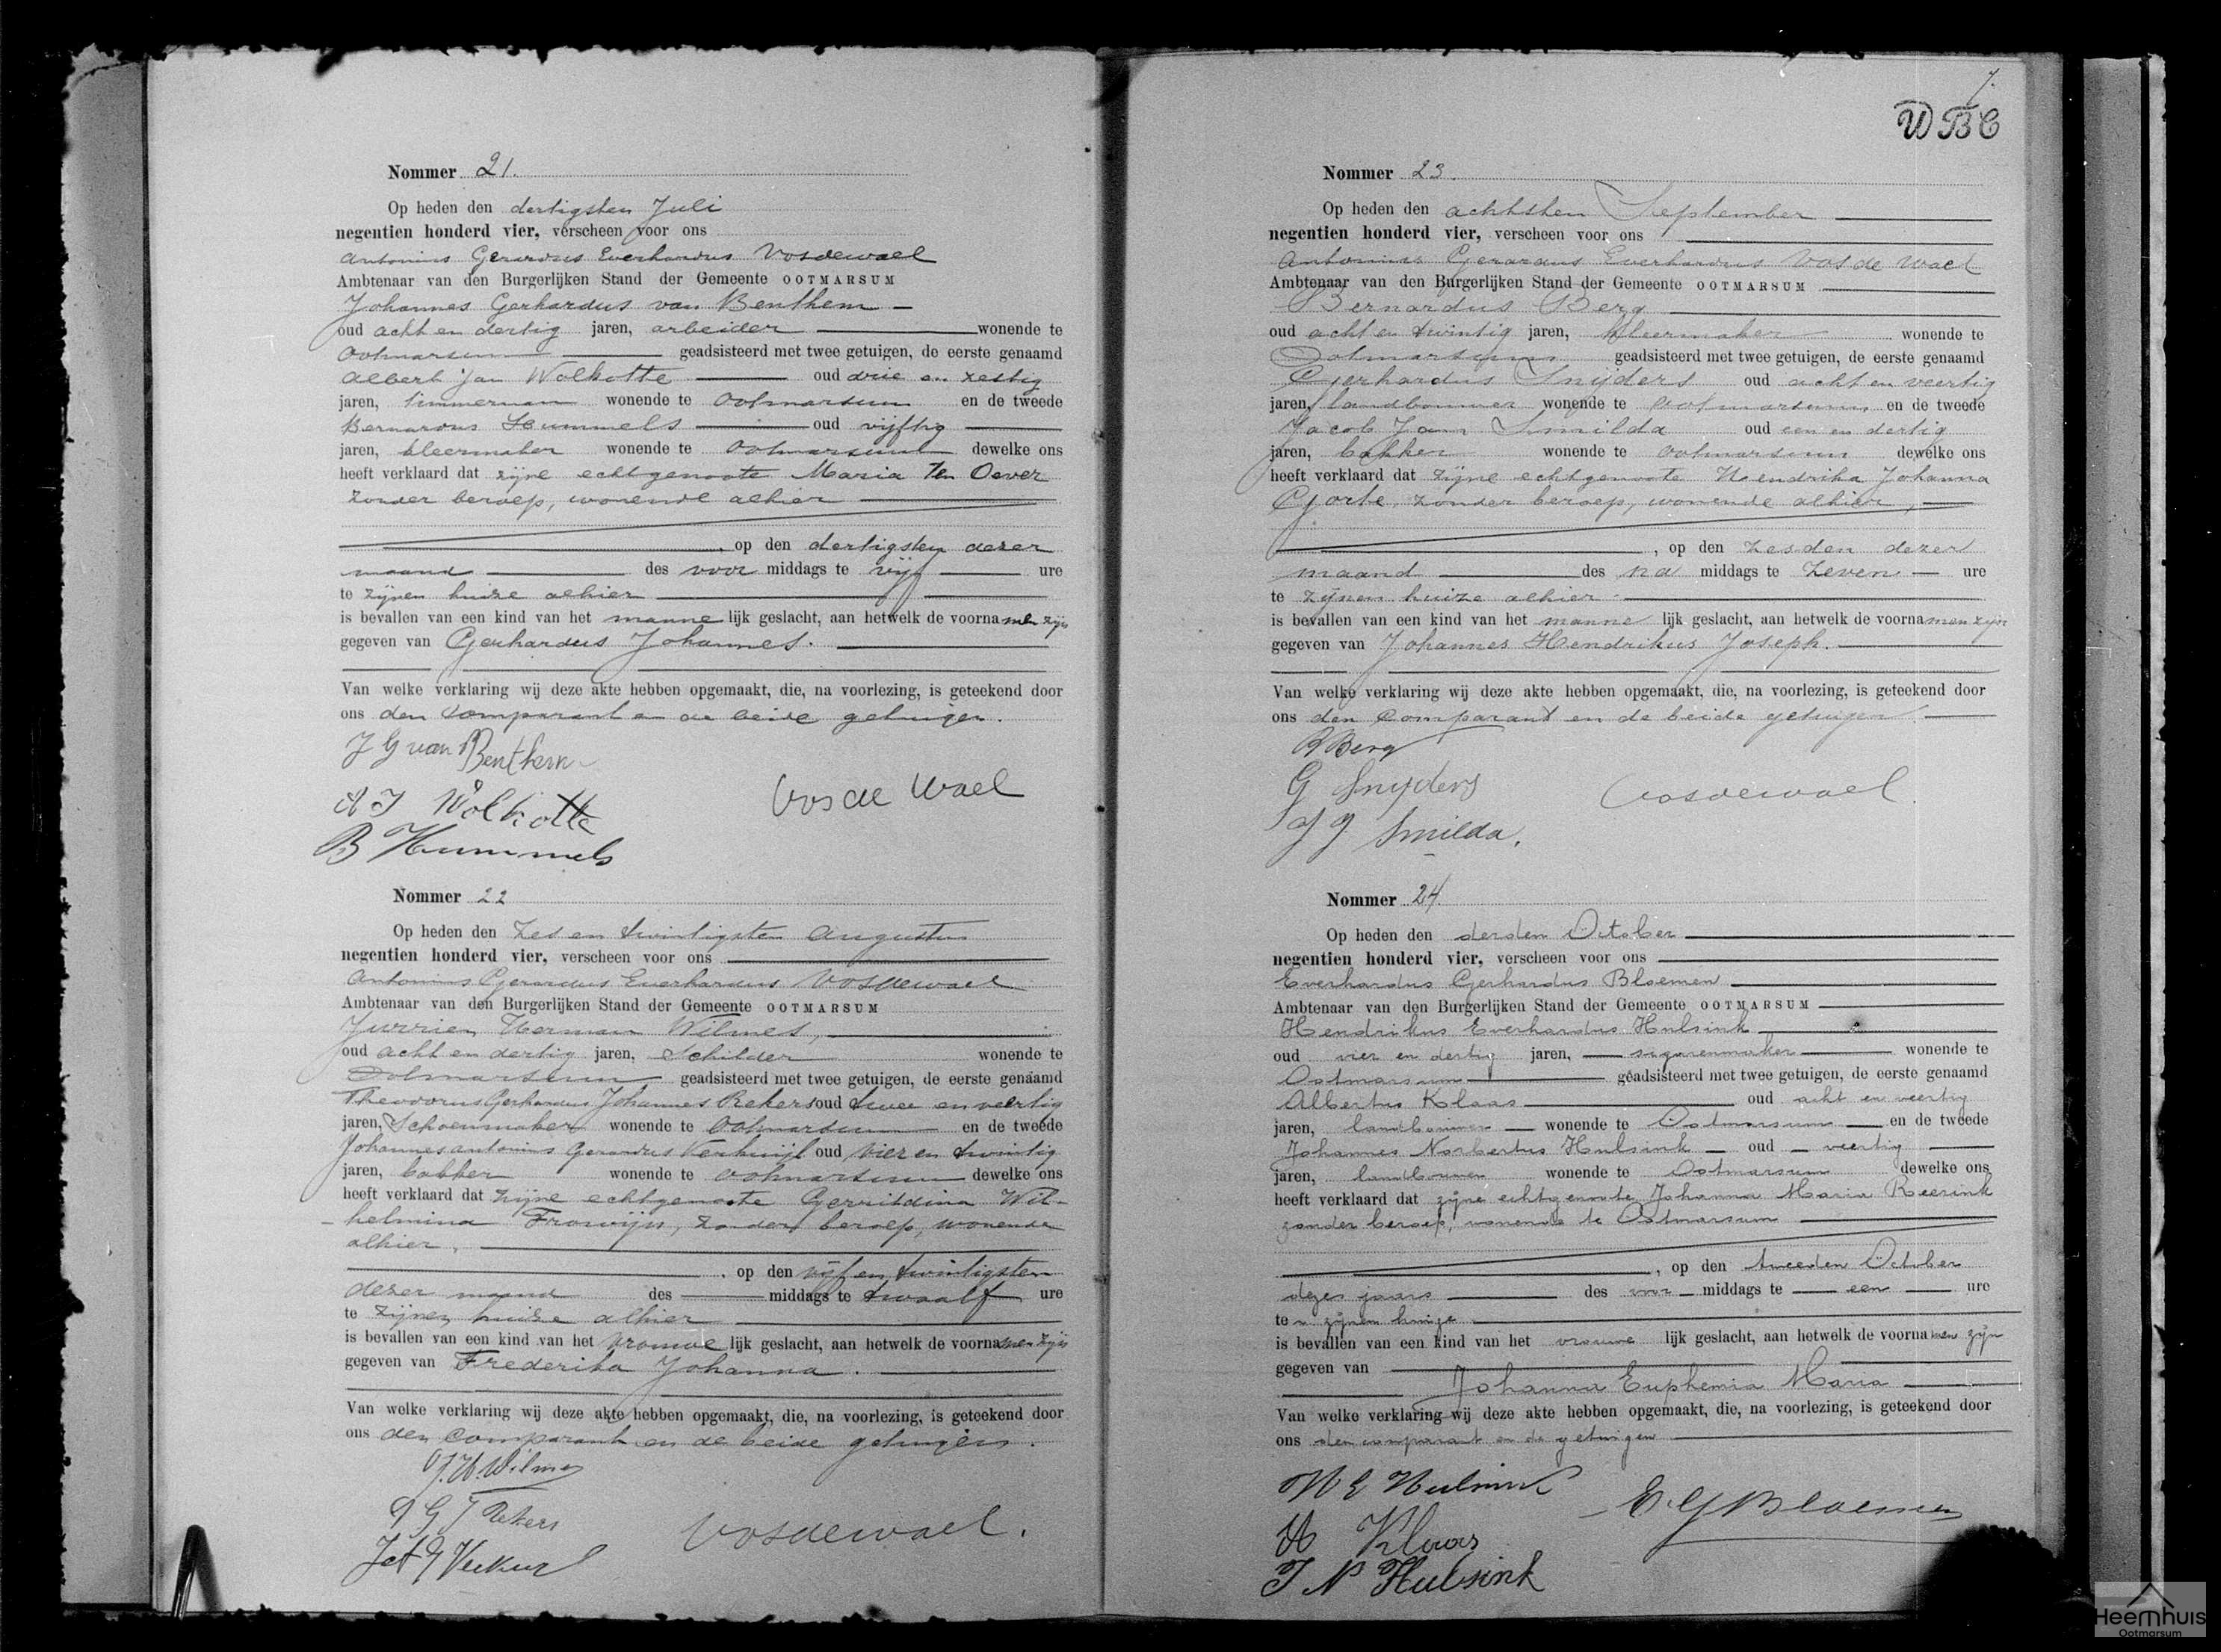 Nommer 21.
Op heden den dertigsten Juli
negentien honderd vier, verscheen voor ons
Antonius Gerardus Everhardus Vosdewael
Ambtenaar van den Burgerlijken Stand der Gemeente OOTMARSUM
Johannes Gerhardus van Benthem
oud acht en dertig jaren, arbeider wonende te
Ootmarsum geadsisteerd met twee getuigen, de eerste genaamd
Albert Jan Wolkotte oud drie en zestig
jaren, timmerman wonende te Ootmarsum en de tweede
Bernardus Hummels oud vijftig
jaren, kleermaker wonende te Ootmarsum dewelke ons
heeft verklaard dat zijne echtgenoote Maria ten Oever
zonder beroep, wonende alhier
, op den dertigsten dezer
maand des voor middags te vijf ure
te zijnen huize alhier
is bevallen van een kind van het manne lijk geslacht, aan hetwelk de voornamen zijn
gegeven van Gerhardus Johannes.
Van welke verklaring wij deze akte hebben opgemaakt, die, na voorlezing, is geteekend door
ons den Comparant en de beide getuigen.
J G van Benthem
A J Wolkotte
Vos de Wael
B Hummels
Nommer 22
Op heden den zes en twintigsten Augustus
negentien honderd vier, verscheen voor ons
Antonius Gerardus Everhardus Vosdewael
Ambtenaar van den Burgerlijken Stand der Gemeente OOTMARSUM
Jurrien Herman Wilmes,
oud acht en dertig jaren, Schilder wonende te
Ootmarsum geadsisteerd met twee getuigen, de eerste genaamd
Theodorus Gerhardus Johannes Rekers oud twee en veertig
jaren, Schoenmaker wonende te Ootmarsum en de tweede
Johannes Antonius Gerardus Verkuijl oud vier en twintig
jaren, bakker wonende te Ootmarsum dewelke ons
heeft verklaard dat zijne echtgenoote Gerritdina Wil-
-helmina Frowijn, zonder beroep, wonende
alhier,
, op den vijf en twintigsten
dezer maand des middags te twaalf ure
te zijnen huize alhier
is bevallen van een kind van het vrouwe lijk geslacht, aan hetwelk de voornamen zijn
gegeven van Frederika Johanna.
Van welke verklaring wij deze akte hebben opgemaakt, die, na voorlezing, is geteekend door
ons den Comparant en de beide getuigen.
J.H. Wilmes
T G J Rekers
Vosdewael.
7.
WBC
Nommer 23.
Op heden den achtsten September
negentien honderd vier, verscheen voor ons
Antonius Gerardus Everhardus Vos de Wael
Ambtenaar van den Burgerlijken Stand der Gemeente OOTMARSUM
Bernardus Berg
oud acht en twintig jaren, kleermaker wonende te
Ootmarsum geadsisteerd met twee getuigen, de eerste genaamd
Gerhardus Snijders oud acht en veertig
jaren, landbouwer wonende te Ootmarsum en de tweede
Jacob Jan Smilda oud een en dertig
jaren, bakker wonende te Ootmarsum dewelke ons
heeft verklaard dat zijne echtgenoote Hendrika Johanna
Gorte, zonder beroep, wonende alhier,
, op den zesden dezer
maand des na middags te zeven ure
te zijnen huize alhier
is bevallen van een kind van het manne lijk geslacht, aan hetwelk de voornamen zijn
gegeven van Johannes Hendrikus Joseph.
Van welke verklaring wij deze akte hebben opgemaakt, die, na voorlezing, is geteekend door
ons den Comparant en de beide getuigen.
B Berg
G Snyders
Vosdewael.
J J Smilda.
Nommer 24.
Op heden den derden October
negentien honderd vier, verscheen voor ons
Everhardus Gerhardus Bloemen
Ambtenaar van den Burgerlijken Stand der Gemeente OOTMARSUM
Hendrikus Everhardus Hulsink
oud vier en dertig jaren, sigarenmaker wonende te
Ootmarsum geadsisteerd met twee getuigen, de eerste genaamd
Albertus Klaas oud acht en veertig
jaren, landbouwer wonende te Ootmarsum en de tweede
Johannes Norbertus Hulsink oud veertig
jaren, landbouwer wonende te Ootmarsum dewelke ons
heeft verklaard dat zijne echtgenoote Johanna Maria Reerink
zonder beroep, wonende te Ootmarsum
, op den tweeden October
dezes jaars des voor middags te een ure
te zijnen huize
is bevallen van een kind van het vrouwe lijk geslacht, aan hetwelk de voornamen zijn
gegeven van
Johanna Euphemia Maria
Van welke verklaring wij deze akte hebben opgemaakt, die, na voorlezing, is geteekend door
ons den comparant en de getuigen
H E Hulsink
E. G Bloemen
A Klaas
J N Hulsink
Heemhuis
Ootmarsum